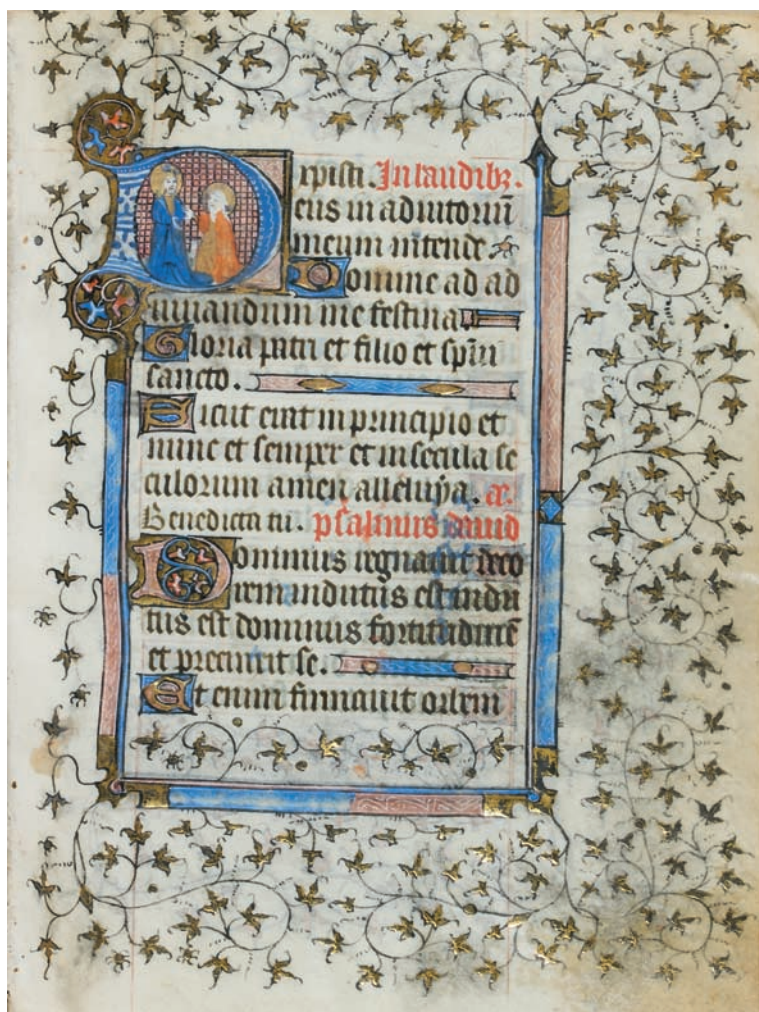 xpisti. In laudibꝫ.
Deus in adiutoriū
meum intende
Domine ad ad
iuuandum me festina.
Gloria patri et filio et spiri
sancto.
Sicut erat in principio et
nunc et semper et in secula se
culorum amen alleluya. æ.
Benedicta tu. psalmus dauid
Dominus regnauit deco
rem indutus est indu
tus est dominus fortitudinē
et precinxit se.
Et enim firmauit orbem